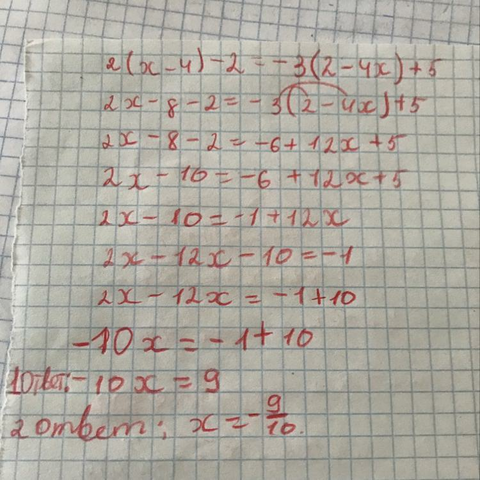 2(x-4)-2=-3(2-4x)+5
2x-8-2=-3(2-4x)+5
2x-8-2=-6+12x+5
2x-10=-6+12x+5
2x-10=-1+12x
2x-12x-10=-1
2x-12x=-1+10
-10x=-1+10
1ответ:-10x=9
2ответ; x=-9/10.